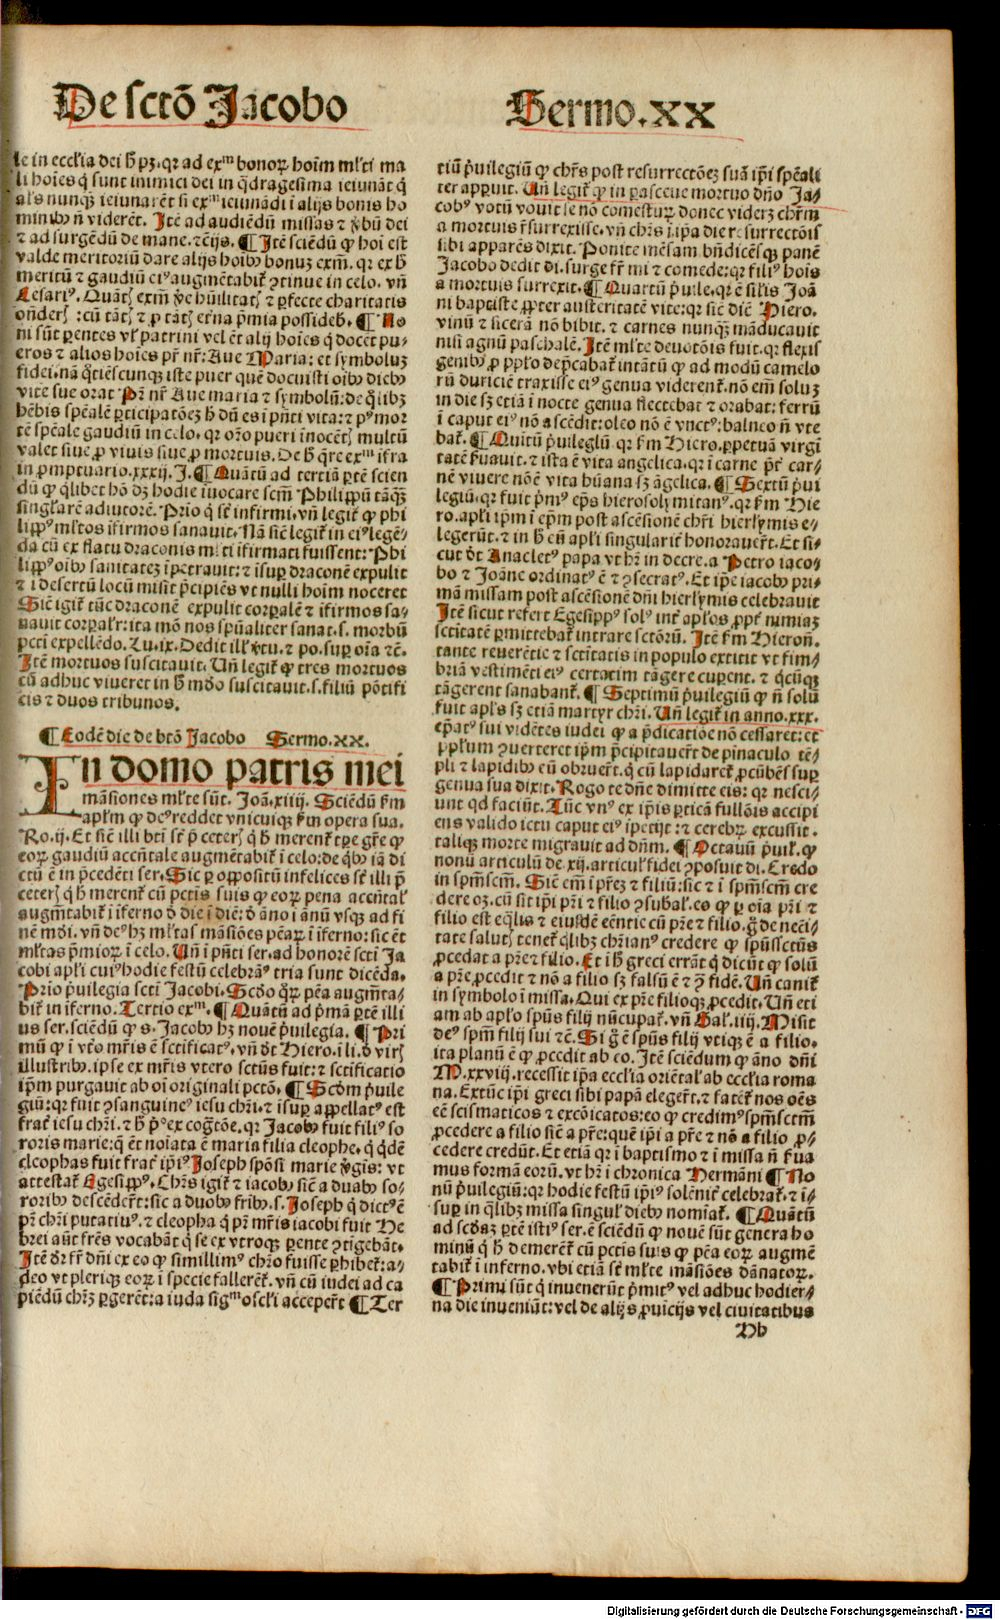 De sctō Jacobo
Sermo.xx
le in eccĺia dei ħ pꝫ.qꝛ ad exᵐ honoꝝ hoīm mĺti ma
li hoīes q̇ sunt inimici dei in q̈dragesima ieiunāt q̇
als nunqꝫ ieiunarēt si exᵐ ieiunādi ī alijs bonis ho
minibꝰ ñ viderēt. Itē ad audiēdū missas ⁊ ꝟbū dei
⁊ ad surgēdū de mane.⁊ ēijs. ¶ Itē sciēdū ꝙ hoī est
valde meritoriū dare alijs hoībꝰ bonuꝫ exm̄. qꝛ ex ħ
meritū ⁊ gaudiū eiꝰ augmētabit̃ ꝯtinue in celo. vñ
Cesariꝰ. Quātꝫ exm̄ ꝟe hūilitatꝫ ⁊ ꝑfecte charitatis
oñderꝫ :cū tātꝫ ⁊ ꝓ tātꝫ et̃na p̄mia possidebꝫ. ¶ No
ni sūt ꝑentes vl̃ patrini vel ēt alij hoīes q̇ docēt pu-
eros ⁊ alios hoīes pr̃ nr̃: Aue Maria: et symboluꝫ
fidei.nā q̈tiēscunqꝫ iste puer quē docuisti oībꝰ diebꝰ
vite sue orat Pr̃ nr̃ Aue maria ⁊ symbolū: de q̇libꝫ
hēbis spēalē ꝑticipatōeꝫ ħ dū es ī pñti vita: ⁊ pꝰ mor
tē spēale gaudiū in celo. qꝛ oꝛ̄o pueri īnocētꝫ multū
valet siue ꝓ viuis siue ꝓ mortuis. De ħ q̃re exᵐ īfra
in ꝓmptuario.xxxij. J. ¶ Quātū ad tertiā ꝑtē scien
dū ꝙ q̇libet hō dꝫ hodie īuocare scm̄ Philippū tāqꝫ
singl̃arē adiutorē. Prio q̇ sr̃ infirmi.vñ legit̃ ꝙ phi
lippꝰ mĺtos īfirmos sanauit. Nā sic̄ legit̃ in eiꝰ legē-
da cū ex flatu draconis mĺti īfirmati fuissent: Phi
lippꝰ oībꝰ sanitateꝫ īpetrauit: ⁊ īsuꝑ draconē expulit
⁊ ī desertū locū misit p̄cipiēs vt nulli hoīm noceret
Sic̄ igit̃ tūc draconē expulit corꝑalē ⁊ īfirmos sa-
nauit corꝑalr̃: ita mō nos spūaliter sanat.s. morbū
pcti expellēdo. Lu.ix. Dedit ill' ꝟtū.⁊ po.suꝑ oīa ⁊c̄.
Itē mortuos suscitauit. Uñ legit̃ ꝙ tres mortuos
cū adhuc viueret in ħ mūdo suscitauit.s.filiū pōtifi
cis ⁊ duos tribunos.
¶ Eodē die de btō Jacobo Sermo.xx.
In domo patris mei
māsiones mĺte sūt. Joā.xiiij. Sciēdū ẜm
apl̃m ꝙ deꝰ reddet vnicuiqꝫ ẜm opera sua.
Ro.ij. Et sic̄ illi bt̄i sr̃ p̄ ceterꝫ q̇ ħ merent̃ tꝑe gr̃e ꝙ
eoꝝ gaudiū accñtale augmētabit̃ ī celo: de q̇bꝰ iā di
ctū ē in p̄cedēti ser. Sic̄ ꝑ oppositū infelices sr̃ illi p̄
ceterꝫ q̇ ħ merent̃ cū pctīs suis ꝙ eoꝝ pena accñtal'
augm̄tabit̃ ī īferno ð die ī diē: ð āno ī ānū vsqꝫ ad fi
nē mūdi. vñ deꝰ hꝫ mĺtas māsiōes pēaꝝ ī īferno: sic̄ ēt
mĺtas p̄mioꝝ ī celo. Un̄ ī pñti ser.ad honorē scti Ja
cobi apl̃i cuiꝰ hodie festū celebrāꝰ tria sunt dicēda.
Prio p̄uilegia scti Jacobi. Scðo q̃ꝝ pēa augm̄ta-
bit̃ in īferno. Tertio exᵐ. ¶ Quātū ad p̄mā ꝑtē illi
us ser. sciēdū ꝙ s. Jacobꝰ hꝫ nouē p̄uilegia. ¶ Pri
mū ꝙ ī vt̃o mr̃is ē sctificatꝰ.vñ ðt Hiero.ī li.ð virꝫ
illustribꝰ. ipse ex mr̃is vtero sctūs fuit: ⁊ sctificatio
ip̄m purgauit ab oī originali pctō. ¶ Scðm p̄uile
giū: qꝛ fuit ꝯsanguineꝰ iesu chr̄i.⁊ īsuꝑ appellatꝰ est
frat̃ iesu chr̄i. ⁊ ħ p̄ᵒ ex cogtōe. qꝛ Jacobꝰ fuit filiꝰ so
roris marie: q̄ ēt noīata ē maria filia cleophe. q̇ q̇dē
cleophas fuit frat̃ ip̄iꝰ Joseph spōsi marie ꝟgīs: vt
attestat̃ Egesippꝰ. Chr̄s igit̃ ⁊ iacobꝰ sic̄ a duabꝰ so-
roribꝰ descēdert̃: sic̄ a duobꝰ fr̃ibꝰ.s. Joseph q̇ dictꝰ ē
pr̃ chr̄i putatiuꝰ. ⁊ cleopha q̇ pr̃ mr̃is iacobi fuit He
brei aūt fr̃es vocabāt q̇ se ex vtroqꝫ ꝑente ꝯtigebāt.
Itē ðr̃ fr̃ dñi ex eo ꝙ simillimꝰ chr̄o fuisse ꝑhibet̃: a-
deo vt pleriqꝫ eoꝝ ī specie fallerēt̃. vñ cū iudei ad ca
piēdū chr̄ꝫ ꝑgerēt: a iuda sigᵐ oscĺi acceꝑt̃ ¶ Ter
tiū p̄uilegiū ꝙ chr̄s post resurrectōeꝫ suā ip̄i spēali
ter appuit. Uñ legit̃ ꝙ in pasceue mortuo dño Ja-
cobꝰ votū vouit se nō comesturꝝ donec videꝫ chr̄m
a mortuis r̃surrexisse. vñ chr̄s ī ip̄a die resurrectōis
sibi apparēs dixit. Ponite mēsam bñdicēsqꝫ panē
Jacobo dedit di. surge fr̃ mi ⁊ comede: qꝛ filiꝰ hoīs
a mortuis surrexit. ¶ Quartū p̄uile.qꝛ ē sil̃is Joā
ni baptiste ꝓpter austeritatē vite: qꝛ sic̄ diē Hiero.
vinū ⁊ sicerā nō bibit. ⁊ carnes nunqꝫ māducauit
nisi agnū paschalē. Itē mĺte deuotōis fuit. qꝛ flexis
genibꝰ ꝓ pplo dep̄cabat̃ intātū ꝙ ad modū camelo
rū duriciē traxisse eiꝰ genua viderent̃. nō em̄ soluꝫ
in die sꝫ etiā ī nocte genua flectebat ⁊ orabat: ferrū
ī caput eiꝰ nō ascēdit: oleo nō ē vnctꝰ: balneo ñ vte
bat̃. ¶ Quītū p̄uilegiū. qꝛ ẜm Hiero. ꝑpetuā virgī
tatē ẜuauit. ⁊ ista ē vita angelica. qꝛ ī carne pr̃ car-
nē viuere nō ē vita hūana sꝫ āgelica. ¶ Sextū p̄ui
legiū. qꝛ fuit p̄mꝰ ep̄s hierosolymitanꝰ. qꝛ ẜm Hie
ro. apl̃i ip̄m ī ep̄m post ascēsionē chr̄i hierl̃ymis e-
legerūt. ⁊ in ħ eū apl̃i singularit̃ honorauer̃t. Et si-
cut ðt Anacletꝰ papa vt hr̃ in decre. a Petro iaco-
bo ⁊ Joāne ordinatꝰ ē ⁊ ꝯsecratꝰ. Et ip̄e iacobꝰ pri-
mā missam post ascēsionē dñi hierl̃ymis celebrauit
Itē sicut refert Egesippꝰ solꝰ int̃ apl̃os ꝓpt̃ nimiaꝫ
sctitatē ꝑmittebat̃ intrare sctōrū. Itē ẜm Hieroñ.
tante reuerētie ⁊ sctitatis in populo extitit vt fim-
briā vestimēti eiꝰ certatim tāgere cuꝑent. ⁊ q̇cūqꝫ
tāgerent sanabant̃. ¶ Septimū p̄uilegiū ꝙ ñ solū
fuit apl̃s sꝫ etiā martyr chr̄i. Uñ legit̃ in anno.xxx.
ep̄atꝰ sui vidētes iudei ꝙ a p̄dicatiōe nō cessaret: et
pplūm ꝯuerteret ip̄m p̄cipitauer̃t de pinaculo tē-
pli ⁊ lapidibꝰ eū obruer̃t. q̇ cū lapidaret̃ ꝓcubēs suꝑ
genua sua dixit. Rogo te dñe dimitte eis: qꝛ nesci-
unt qd faciūt. Tūc vnꝰ ex ip̄is ꝑticā fullōis accipi
ens valido ictu caput eiꝰ ꝑetijt: ⁊ cerebꝝ excussit.
taliqꝫ morte migrauit ad dñm. ¶ Octauū p̄uil'. ꝙ
nonū articulū de.xij.articul' fidei ꝯposuit di. Credo
in spm̄scm̄. Sic̄ em̄ ī pr̃eꝫ ⁊ filiū: sic ⁊ ī spm̄scm̄ cre
dere oꝫ. cū sit ip̄i pr̃i ⁊ filio ꝯsubal'. eo ꝙ ꝑ oīa pr̃i ⁊
filio est eq̃lis ⁊ eiusdē eēntie cū pr̃e ⁊ filio. g̊ de neci-
tate salutꝫ tenet̃ q̇libꝫ chr̄ianꝰ credere ꝙ spūssctūs
ꝓcedat a pr̃e ⁊ filio. Et ī ħ greci errāt q̇ dicūt ꝙ solū
a pr̃e ꝓcedit ⁊ nō a filio sꝫ falsū ē ⁊ ꝯ fidē. Uñ canit̃
in symbolo ī missa. Qui ex pr̃e filioqꝫ ꝓcedit. Uñ eti
am ab apl̃o spūs filij nūcupat̃. vñ Gal'.iiij. Misit
deꝰ spm̄ filij sui ⁊c̄. Si g̊ ē spūs filij vtiqꝫ ē a filio.
ita planū ē ꝙ ꝓcedit ab eo. Itē sciēdum ꝙ āno dñi
M.xxviij. recessit ip̄a ecclīa oriētal' ab ecclīa roma
na. Extūc ip̄i greci sibi papā elegert̃. ⁊ fatent̃ nos oēs
eē scismaticos ⁊ excōicatos: eo ꝙ credimꝰ spm̄sctm̄
ꝓcedere a filio sic̄ a pr̃e: quē ip̄i a pr̃e ⁊ nō a filio ꝓ-
cedere credūt. Et etiā qꝛ ī baptismo ⁊ ī missa ñ ẜua
mus formā eorū. vt hr̃ ī chronica Hermāni ¶ No
nū p̄uilegiū: qꝛ hodie festū ip̄iꝰ solēnit̃ celebrat̃. ⁊ ī-
suꝑ in q̇libꝫ missa singul' diebꝰ nomīat̃. ¶ Quātū
ad scðaꝫ ꝑtē istiꝰ ser. ē sciēdū ꝙ nouē sūt genera ho
minū q̇ ħ demerēt̃ cū pctīs suis ꝙ pēa eoꝝ augmē
tabit̃ ī inferno. vbi etiā sr̃ mĺte māsiōes dānatoꝝ.
¶ Primi sūt q̇ inuenerūt p̄mitꝰ vel adhuc hodier-
na die inueniūt: vel de alijs ꝓuīcijs vel ciuitatibus
Hb
Digitalisierung gefördert durch die Deutsche Forschungsgemeinschaft - DFG